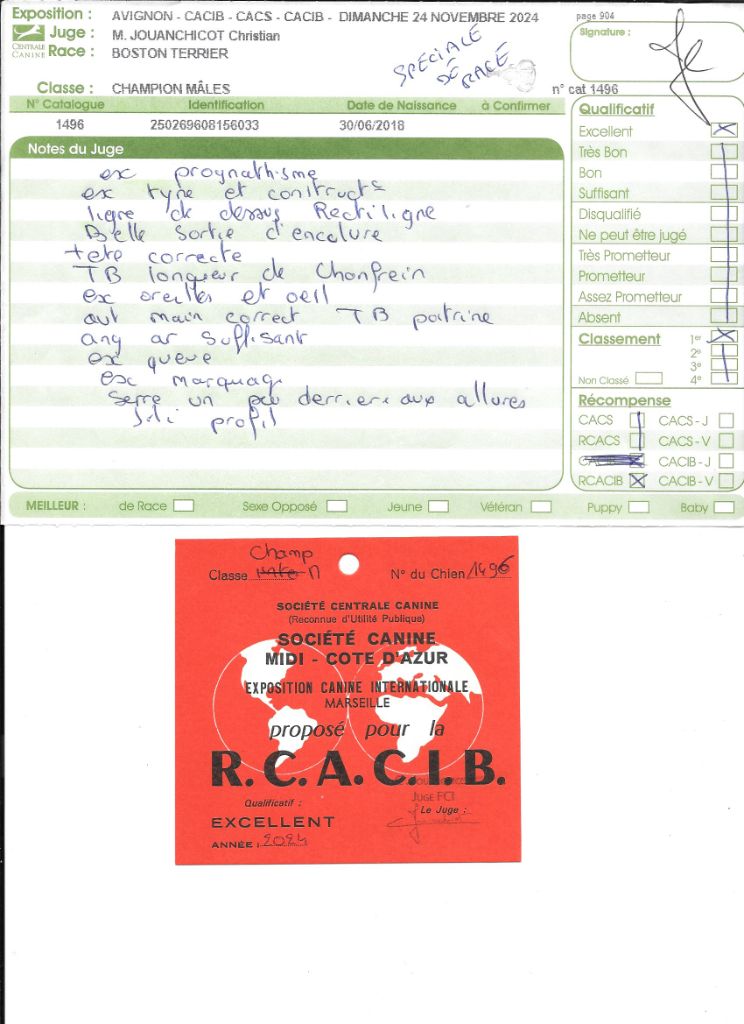 Exposition : AVIGNON - CACIB - CACS - CACIB - DIMANCHE 24 NOVEMBRE 2024
page 904
CENTRALE CANINE
Juge : M. JOUANCHICOT Christian
Race : BOSTON TERRIER
SPÉCIALE DE RACE
Signature :
Classe : CHAMPION MÂLES
n° cat 1496
N° Catalogue Identification Date de Naissance à Confirmer
1496 250269608156033 30/06/2018
Notes du Juge
ex prognathisme
ex type et construct°
ligne de dessus Rectiligne
Belle Sortie d'encolure
tete correcte
TB longueur de Chanfrein
ex oreilles et oeil
aut main correct TB poitrine
ang ar suffisant
ex queue
ex marquag
Serre un peu derriere aux allures
Joli profil
Qualificatif
Excellent
Très Bon
Bon
Suffisant
Disqualifié
Ne peut être jugé
Très Prometteur
Prometteur
Assez Prometteur
Absent
Classement 1er
2e
3e
Non Classé 4e
Récompense
CACS CACS - J
RCACS CACS - V
CACIB - J
RCACIB CACIB - V
MEILLEUR : de Race Sexe Opposé Jeune Vétéran Puppy Baby
Champ
Classe N° du Chien 1496
SOCIÉTÉ CENTRALE CANINE
(Reconnue d'Utilité Publique)
SOCIÉTÉ CANINE
MIDI - COTE D'AZUR
EXPOSITION CANINE INTERNATIONALE
MARSEILLE
proposé pour la
R.C.A.C.I.B.
JUGE FCI
Qualificatif : Le Juge :
EXCELLENT
ANNÉE : 2024